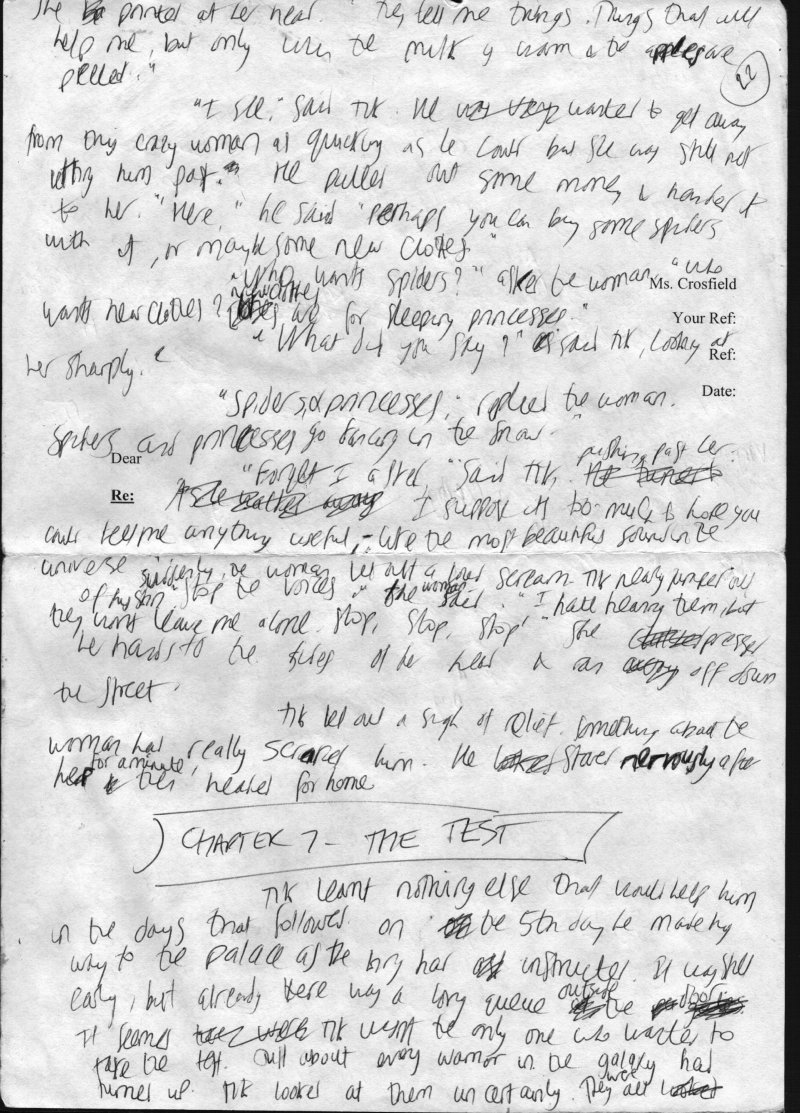 She pointed at her head. "They tell me things. Things that will
help me, but only when the milk is warm & the apples are
peeled."
22
"I see," said Tik. He wanted to get away
from this crazy woman as quickly as he could but she was still not
letting him past. He pulled out some money & handed it
to her. "Here," he said "perhaps you can buy some spiders
with it, or maybe some new clothes."
"Who wants spiders?" asked the woman "who
Ms. Crosfield
wants new clothes? New clothes are for sleeping princesses."
Your Ref:
"What did you say?" said Tik, looking at
Ref:
her sharply.
Date:
"Spiders & princesses, replied the woman.
Spiders and princesses go dancing in the snow."
Dear
"Forget I asked," said Tik, pushing past her.
Re:
I suppose it's too much to hope you
could tell me anything useful, - like the most beautiful sound in the
universe
Suddenly, the woman let out a loud scream. Tik nearly jumped out
of his skin "Stop the voices" the woman said. "I hate hearing them, but
they won't leave me alone. Stop, stop, stop!" She pressed
her hands to the sides of her head & ran off down
the street.
Tik let out a sigh of relief. Something about the
woman had really scared him. He stared nervously after
her for a minute, then headed for home
CHAPTER 7 - THE TEST
Tik learnt nothing else that would help him
in the days that followed. On the 5th day he made his
way to the palace as the king had instructed. It was still
early, but already there was a long queue outside the door.
It seemed Tik wasn't the only one who wanted to
take the test. Just about every warrior in the galaxy had
turned up. Tik looked at them uncertainly. They all were